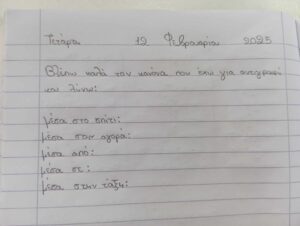 Τετάρα 12 Φεβραρία 2025
Βλέπω καλά τον κανόνα που έχω για αντιγραφή
και λύνω:
μέσα στο σπίτι:
μέσα στην αγορά:
μέσα από:
μέσα σε:
μέσα στην τάξη: